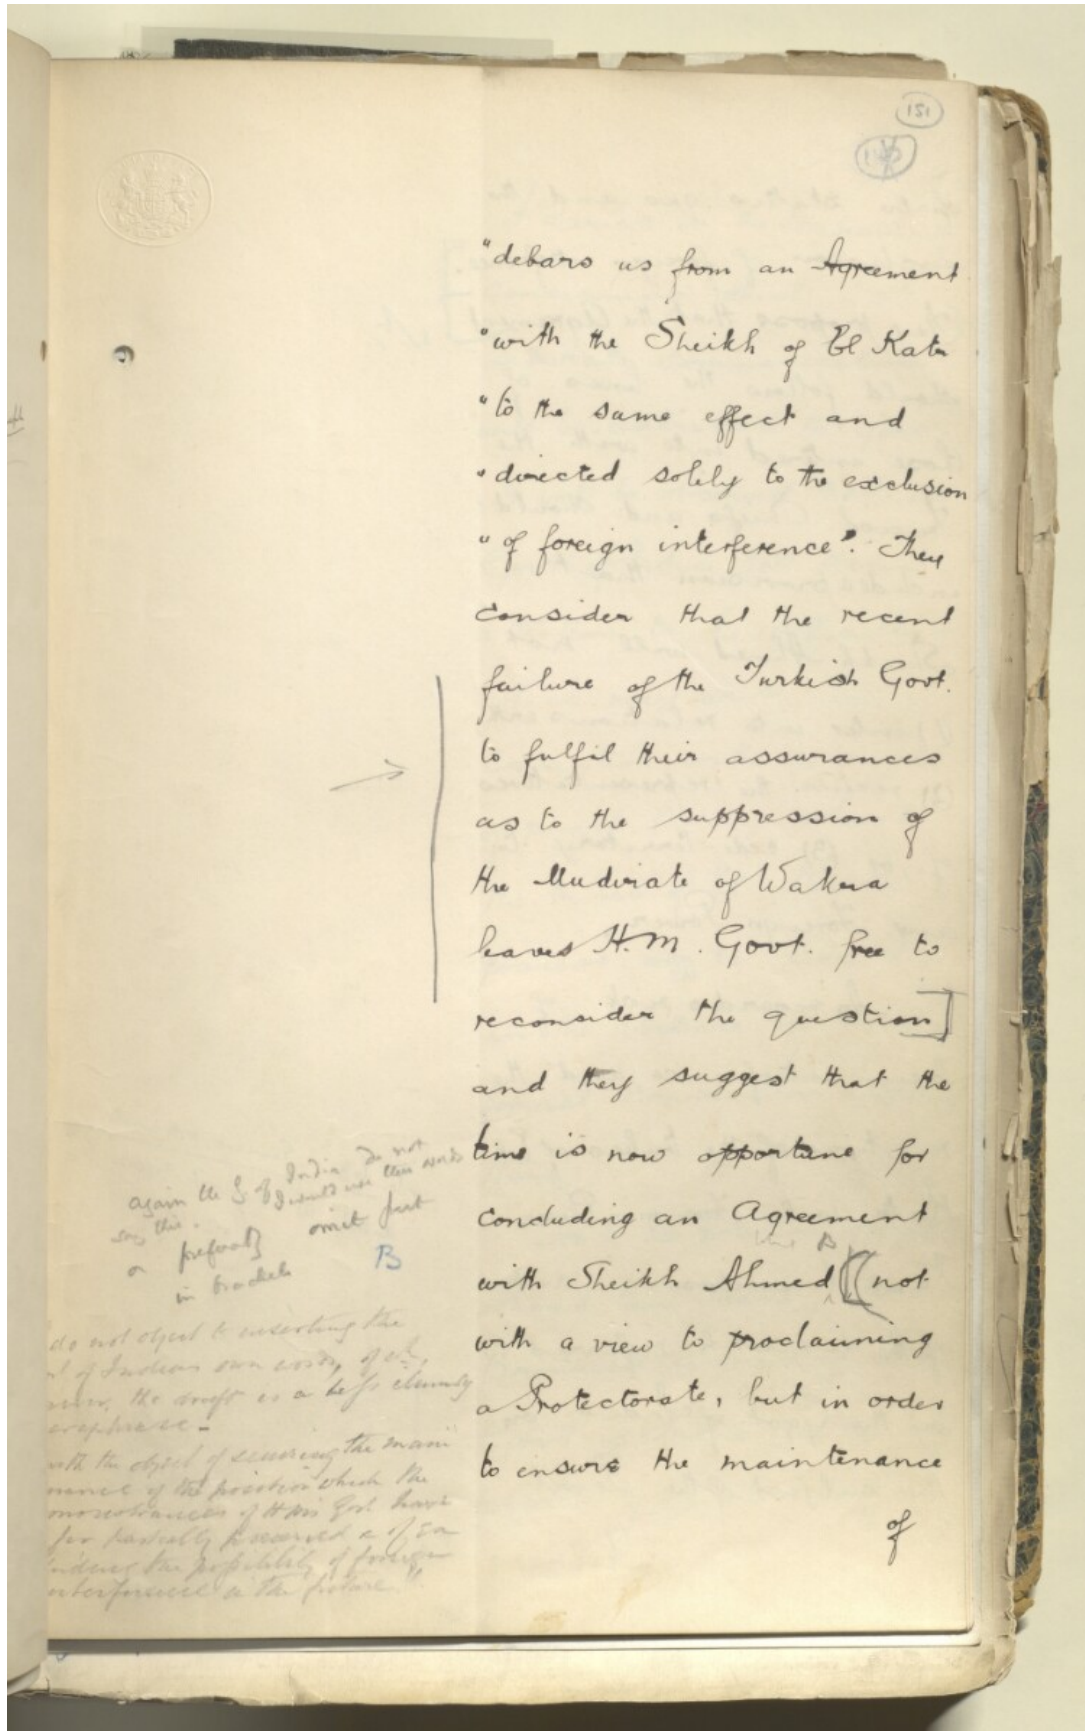 151
"debars us from an Agreement
"with the Sheikh of El Katr
"to the same effect and
"directed solely to the exclusion
"of foreign interference". They
consider that the recent
failure of the Turkish Govt.
to fulfil their assurances
as to the suppression of
the Mudirate of Wakra
leaves H.M. Govt. free to
reconsider the question]
and they suggest that the
time is now opportune for
concluding an Agreement
with Sheikh Ahmed [(not
with a view to proclaiming
a Protectorate, but in order
to ensure the maintenance
of
again the G of India do not
say this. I would use their words
or preferably omit part
in brackets B
do not object to inserting the
of Indias own words, of
the draft is a less clumsy
with the object of securing the main
of the position which the
of HM's Govt have
far partially preserved & of
the possibility of foreign
interference in the future."